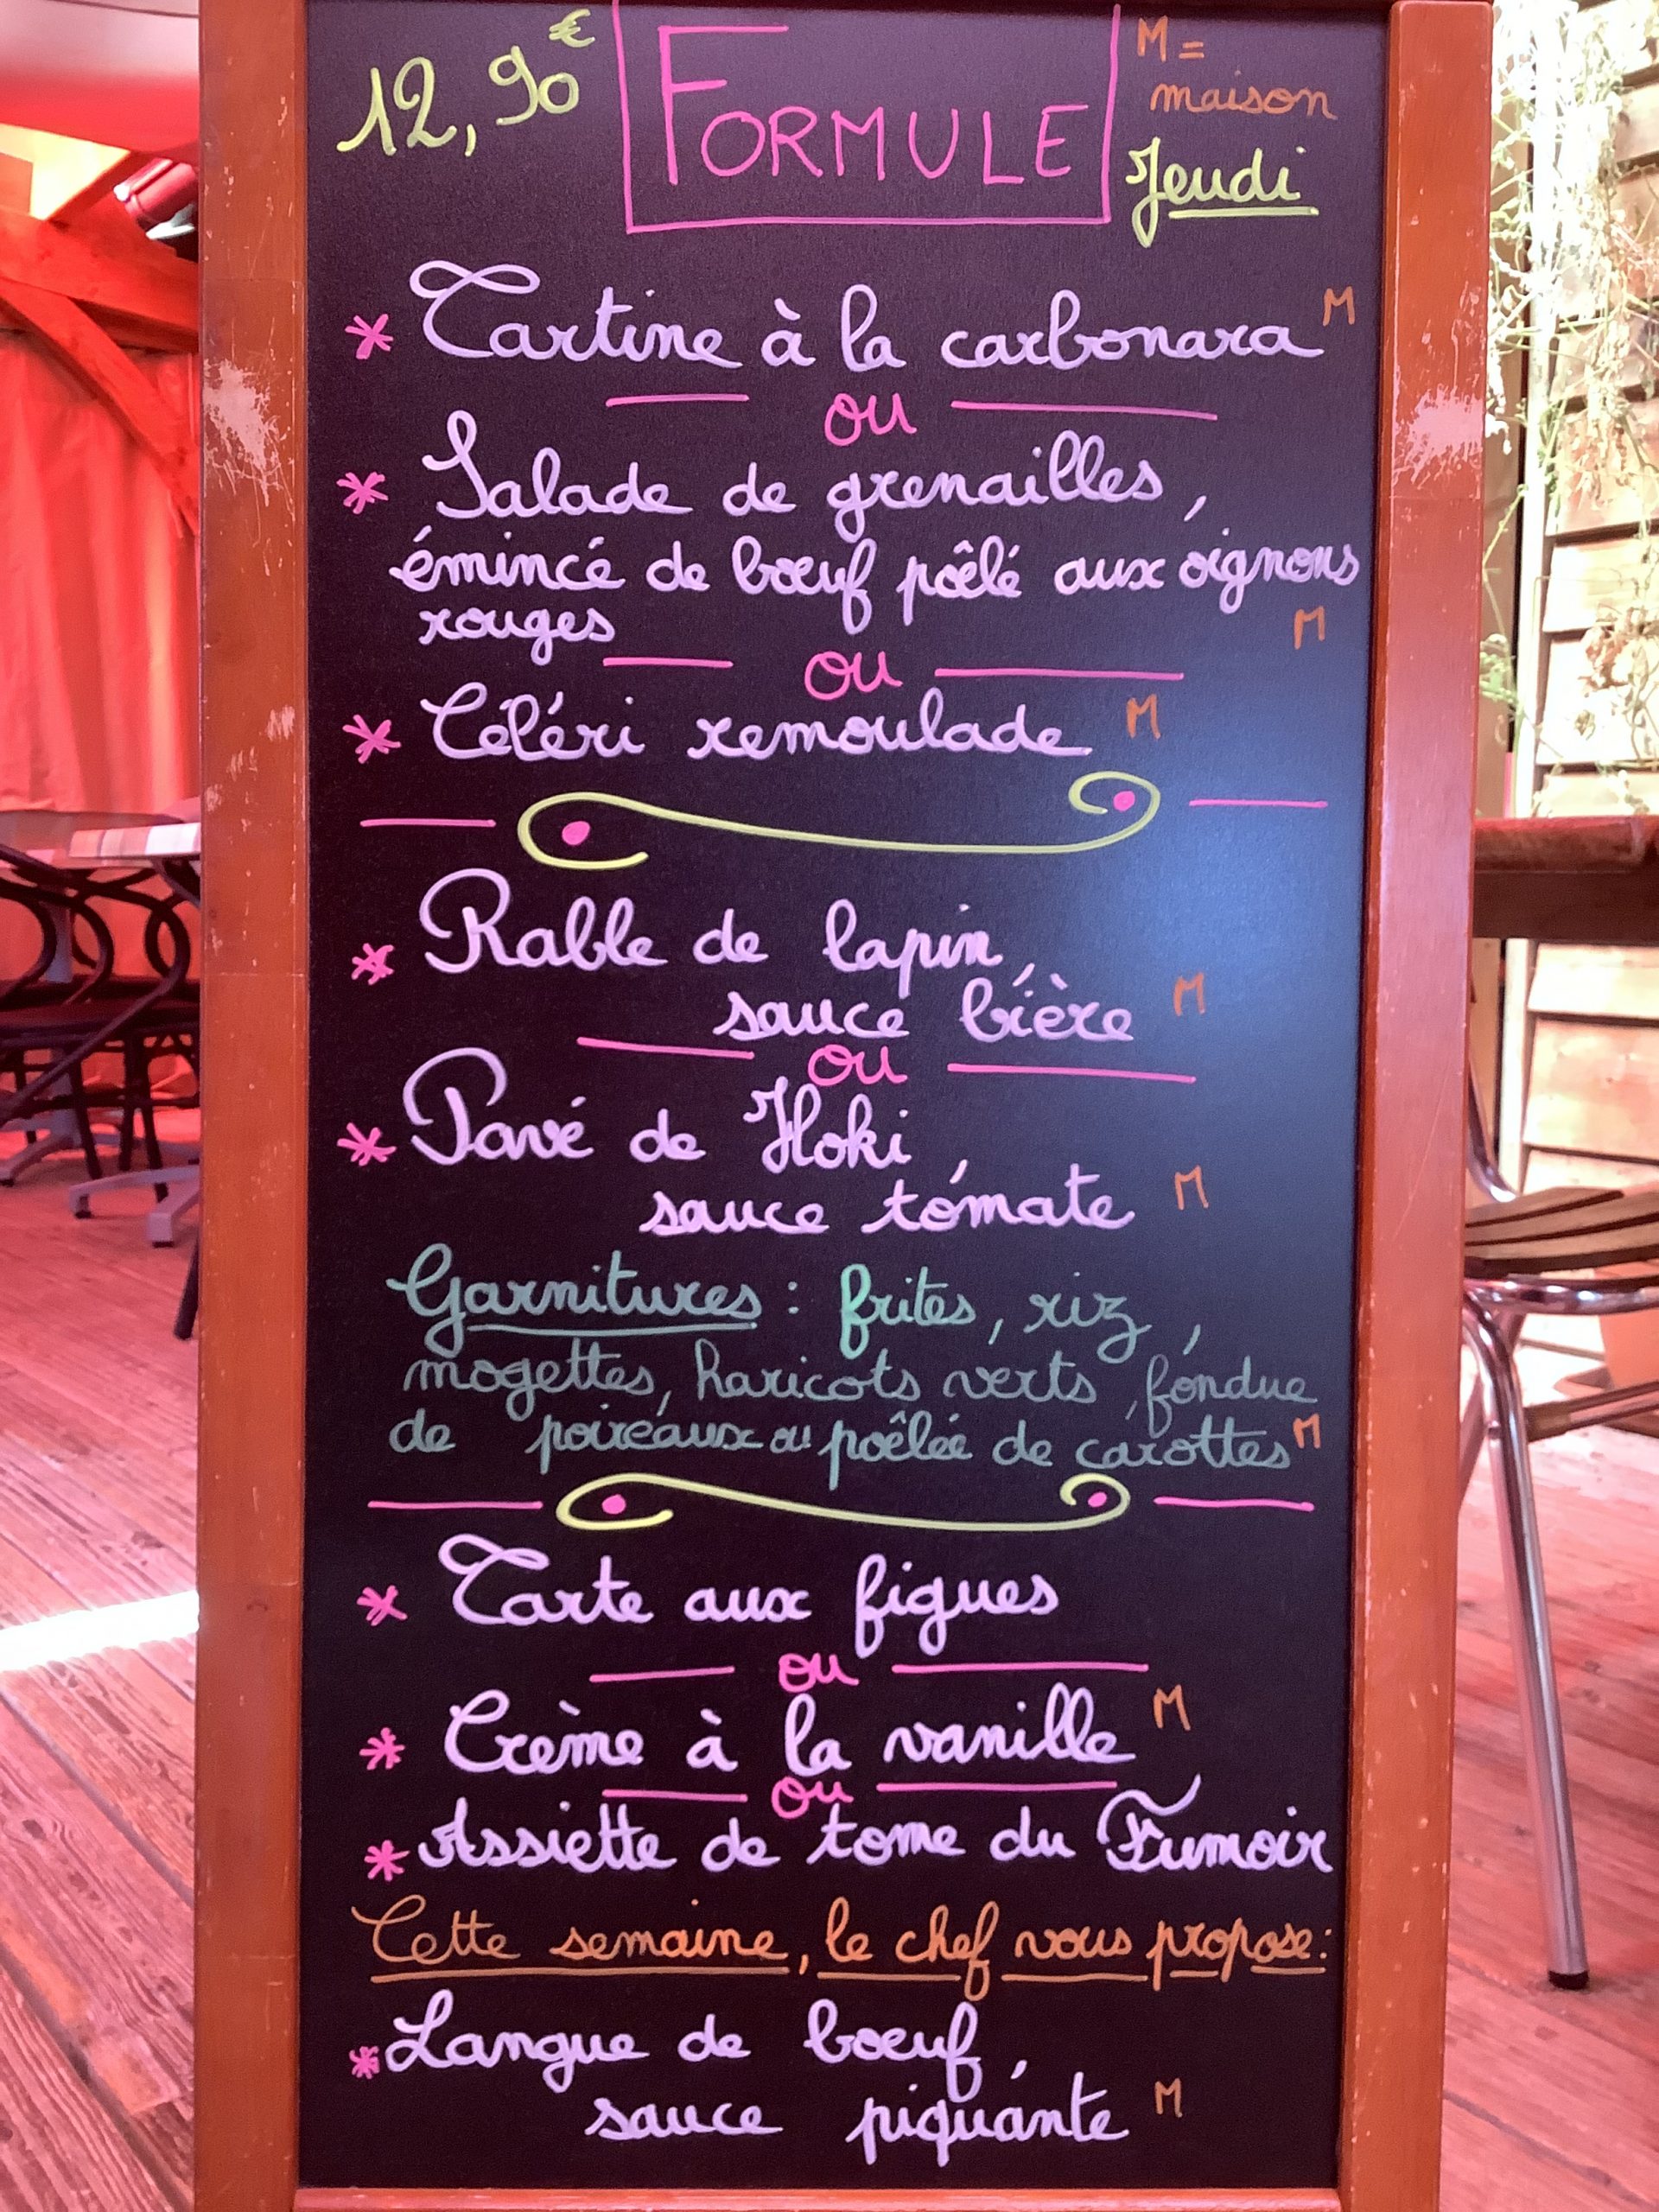 12,90€
FORMULE
M =
maison
Jeudi
* Tartine à la carbonara M
ou
* Salade de grenailles,
émincé de bœuf pôêlé aux oignons
rouges M
ou
* Céléri remoulade M
* Rable de lapin,
sauce bière M
ou
* Pavé de Hoki,
sauce tomate M
Garnitures : frites, riz,
mogettes, haricots verts, fondue
de poireaux ou poêlée de carottes M
* Tarte aux figues
ou
* Crème à la vanille M
ou
* Assiette de tome du Fumoir
Cette semaine, le chef vous propose:
* Langue de bœuf,
sauce piquante M